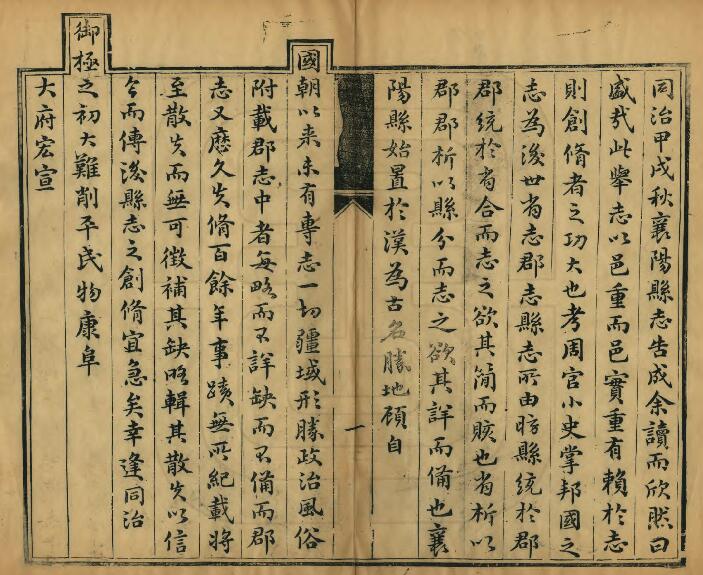 同治甲戌秋襄陽縣志告成余讀而欣然曰
盛哉此舉志以邑重而邑實重有賴於志
則創脩者之功大也考周官小史掌邦國之
志為後世省志郡志縣志所由昉縣統於郡
郡統於省合而志之欲其簡而賅也省析以
郡郡析以縣分而志之欲其詳而備也襄
陽縣始置於漢為古名勝地顧自
一
國朝以来未有專志一切疆域形勝政治風俗
附載郡志中者每略而不詳缺而不備而郡
志又歷久失脩百餘年事蹟無所紀載將
至散失而無可徵補其缺略輯其散失以信
今而傳後縣志之創脩宜急矣幸逢同治
御極之初大難削平民物康阜
大府宏宣